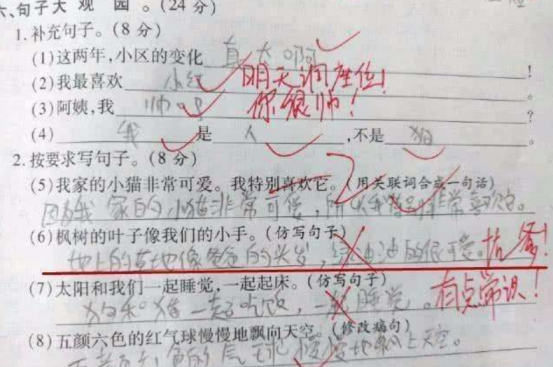 六、句子大观园。(24分)
1.补充句子。(8分)
(1)这两年,小区的变化真大啊!
(2)我最喜欢小红。明天调座位!
(3)阿姨,我帅吗?你很帅!
(4)我是人,不是狗。
2.按要求写句子。(8分)
(5)我家的小猫非常可爱。我特别喜欢它。(用关联词合成一句话)
因为我家的小猫非常可爱,所以我非常喜欢。
(6)枫树的叶子像我们的小手。(仿写句子)
地上的草地像爸爸的头发,
(7)太阳和我们一起睡觉,一起起床。(仿写句子)有点常识!
狗和猪一起吃饭,一起睡觉。
(8)五颜六色的红气球慢慢地飘向天空。(修改病句)
色的气球慢慢地飘上天空。